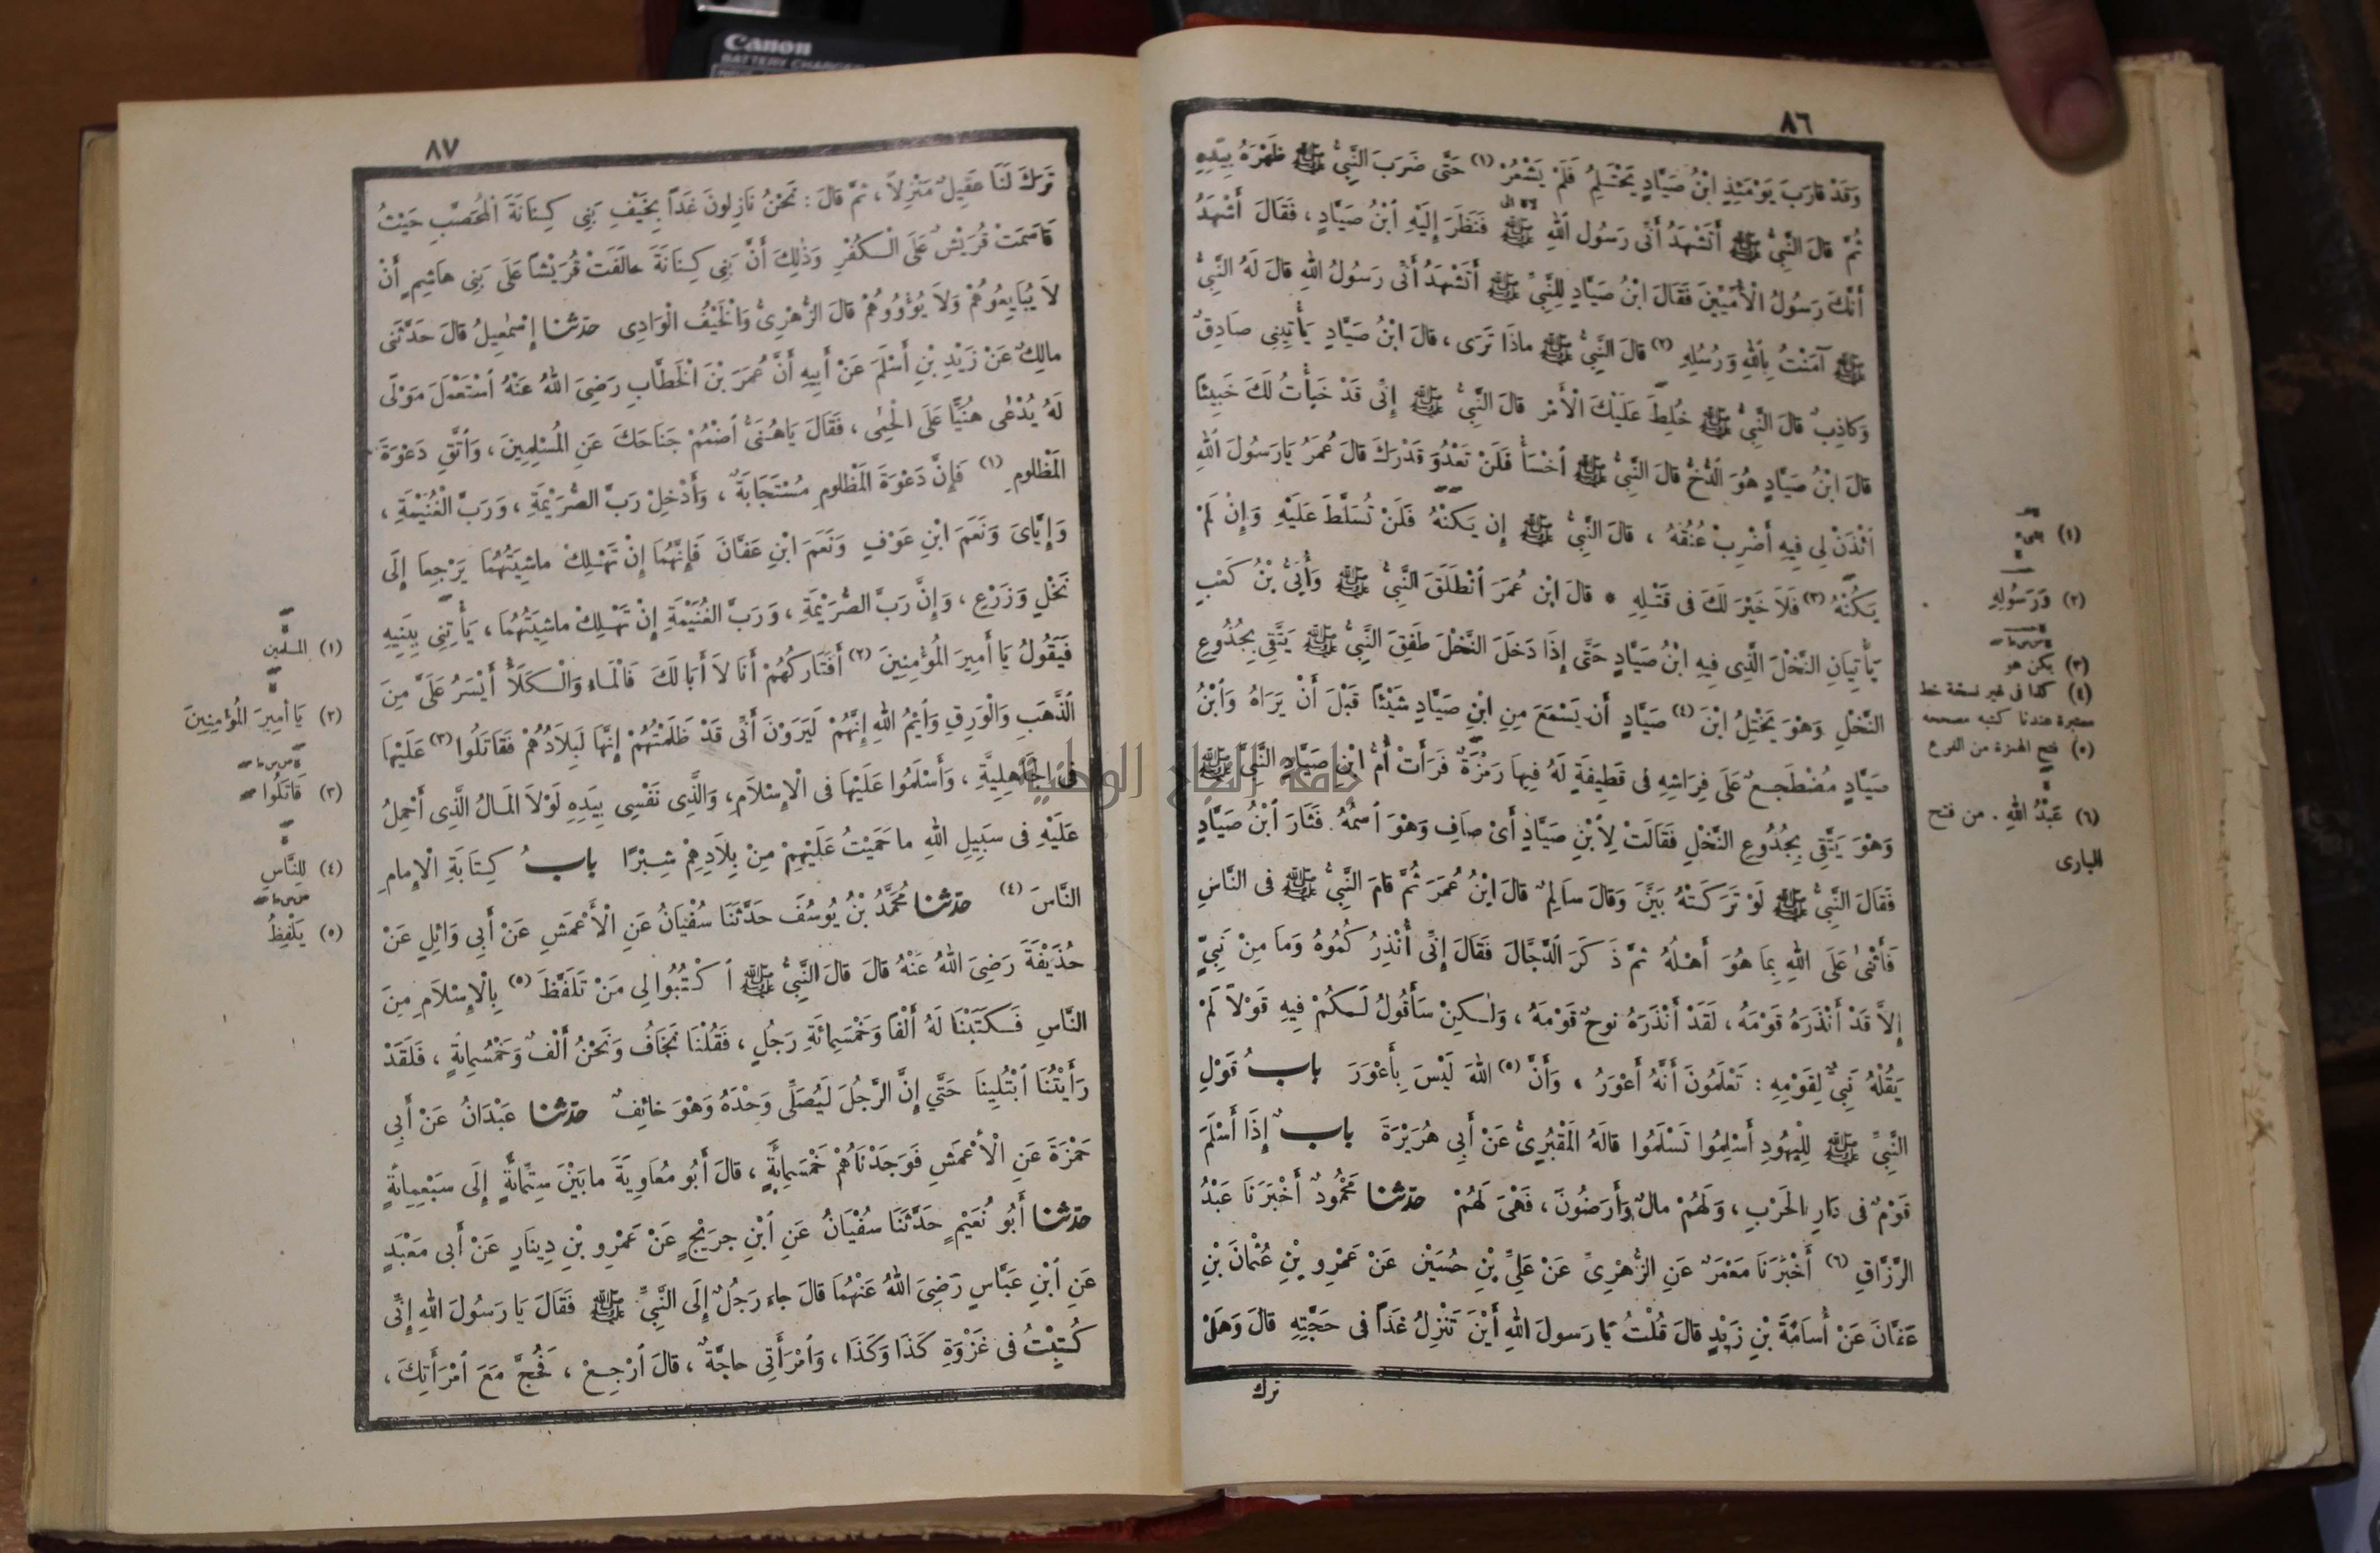 Canon
BATTERY CHARGER
٨٦
وَقَدْ قَارَبَ يَوْمَئِذٍ ابْنُ صَيَّادٍ يَحْتَلِمُ فَلَمْ يَشْعُرْ (١) حَتَّى ضَرَبَ النَّبِيُّ ﷺ ظَهْرَهُ بِيَدِهِ
ثُمَّ قالَ النَّبِيُّ ﷺ أَتَشْهَدُ أَنِّى رَسُولُ اللهِ ﷺ فَنَظَرَ إِلَيْهِ ابْنُ صَيَّادٍ ، فَقَالَ أَشْهَدُ
أَنَّكَ رَسُولُ الْأُمِّيِّينَ فَقَالَ ابْنُ صَيَّادٍ لِلنَّبِيِّ ﷺ أَتَشْهَدُ أَنِّى رَسُولُ اللهِ قالَ لَهُ النَّبِيُّ
ﷺ آمَنْتُ بِاللهِ وَرُسُلِهِ (٢) قالَ النَّبِيُّ ﷺ ماذَا تَرَى ، قالَ ابْنُ صَيَّادٍ يَأْتِينِى صَادِقٌ
وَكاذِبٌ قالَ النَّبِيُّ ﷺ خُلِطَ عَلَيْكَ الْأَمْرُ قالَ النَّبِيُّ ﷺ إِنِّى قَدْ خَبَأْتُ لَكَ خَبِيئًا
قالَ ابْنُ صَيَّادٍ هُوَ الدُّخُّ قالَ النَّبِيُّ ﷺ اخْسَأْ فَلَنْ تَعْدُوَ قَدْرَكَ قالَ عُمَرُ يَا رَسُولَ اللهِ
ائْذَنْ لِي فِيهِ أَضْرِبْ عُنُقَهُ ، قالَ النَّبِيُّ ﷺ إِن يَكُنْهُ فَلَنْ تُسَلَّطَ عَلَيْهِ وَإِنْ لَمْ
يَكُنْهُ (٣) فَلاَ خَيْرَ لَكَ فى قَتْلِهِ * قالَ ابْن عُمَرَ انْطَلَقَ النَّبِيُّ ﷺ وَأُبَيُّ بْنُ كَعْبٍ
يَأْتِيَانِ النَّخْلَ الَّذِى فِيهِ ابْنُ صَيَّادٍ حَتَّى إِذَا دَخَلَ النَّخْلَ طَفِقَ النَّبِيُّ ﷺ يَتَّقِى بِجُذُوعِ
النَّخْلِ وَهْوَ يَخْتِلُ ابْنَ (٤) صَيَّادٍ أَن يَسْمَعَ مِنِ ابْنِ صَيَّادٍ شَيْئًا قَبْلَ أَنْ يَرَاهُ وَابْنُ
صَيَّادٍ مُضْطَجِعٌ عَلَى فِرَاشِهِ فى قَطِيفَةٍ لَهُ فِيهَا رَمْزَةٌ فَرَأَتْ أُمُّ ابْنِ صَيَّادٍ النَّبِيَّ ﷺ
وَهْوَ يَتَّقِى بِجُذُوعِ النَّخْلِ فَقَالَتْ لِابْنِ صَيَّادٍ أَىْ صَافِ وَهْوَ اسْمُهُ . فَثَارَ ابْنُ صَيَّادٍ
فَقَالَ النَّبِيُّ ﷺ لَوْ تَرَكَتْهُ بَيَّنَ وَقالَ سالِمٌ قالَ ابْنُ عُمَرَ ثُمَّ قامَ النَّبِيُّ ﷺ فى النَّاسِ
فَأَثْنَى عَلَى اللهِ بِمَا هُوَ أَهْلُهُ ثمَّ ذَكَرَ الدَّجَّالَ فَقَالَ إِنِّى أُنْذِرُكُمُوهُ وَما مِنْ نَبِيٍّ
إِلاَّ قَدْ أَنْذَرَهُ قَوْمَهُ ، لَقَدْ أَنْذَرَهُ نوحٌ قَوْمَهُ ، وَلٰكِنْ سَأَقُولُ لَكُمْ فِيهِ قَوْلاً لَمْ
يَقُلْهُ نَبِيٌّ لِقَوْمِهِ : تَعْلَمُونَ أَنَّهُ أَعْوَرُ ، وَأَنَّ (٥) اللهَ لَيْسَ بِأَعْوَرَ بابُ قَوْلِ
النَّبِيِّ ﷺ لِلْيَهُودِ أَسْلِمُوا تَسْلَمُوا قالَهُ الْمَقْبُرِىُّ عَنْ أَبِى هُرَيْرَةَ بابٌ إِذَا أَسْلَمَ
قَوْمٌ فى دَارِ الحَرْبِ ، وَلَهُمْ مالٌ وَأَرَضُونَ ، فَهْىَ لَهُمْ حدثنا مَحْمُودٌ أَخْبَرَنَا عَبْدُ
الرَّزَّاقِ (٦) أَخْبَرَنَا مَعْمَرٌ عَنِ الزُّهْرِىِّ عَنْ عَلِيِّ بْنِ حُسَيْن عَنْ عَمْرِو بْنِ عُثْمَانَ بْنِ
عَفَّانَ عَنْ أُسَامَةَ بْنِ زَيْدٍ قالَ قُلْتُ يَا رَسولَ اللهِ أَيْنَ تَنْزِلُ غَدًا فى حَجَّتِهِ قالَ وَهَلْ
ترك
(٢) وَرَسُولِهِ
(٣) يكن هو
(٤) كذا فى غير نسخة خط
معتبرة عندنا كتبه مصححه
(٥) فتح الهمزة من الفرع
(٦) عَبْدُ اللهِ . من فتح
البارى
جامعة النجاح الوطنية
٨٧
تَرَكَ لَنَا عَقِيلٌ مَنْزِلاً ، ثمَّ قالَ : نَحْنُ نَازِلونَ غَدًا بِخَيْفِ بَنِى كِنَانَةَ الْمُحَصَّبِ حَيْثُ
قَاسَمَتْ قُرَيْشٌ عَلَى الْكُفْرِ وَذٰلِكَ أَنَّ بَنِى كِنَانَةَ حالَفَتْ قُرَيْشًا عَلَى بَنِى هَاشِمٍ أَنْ
لاَ يُبَايِعُوهُمْ وَلاَ يُؤْوُوهُمْ قالَ الزُّهْرِىُّ وَالْخَيْفُ الْوَادِى حدثنا إِسْمٰعِيلُ قالَ حَدَّثَنِى
مالِكٌ عَنْ زَيْدِ بْنِ أَسْلَمَ عَنْ أَبِيهِ أَنَّ عُمَرَ بْنَ الْخَطَّابِ رَضِىَ اللهُ عَنْهُ اسْتَعْمَلَ مَوْلًى
لَهُ يُدْعٰى هُنَيًّا عَلَى الْحِمٰى ، فَقَالَ يَا هُنَىُّ اضْمُمْ جَنَاحَكَ عَنِ الْمُسْلِمِينَ ، وَاتَّقِ دَعْوَةَ
الْمَظْلومِ (١) فَإِنَّ دَعْوَةَ الْمَظْلومِ مُسْتَجَابَةٌ ، وَأَدْخِلْ رَبَّ الصُّرَيْمَةِ ، وَرَبَّ الْغُنَيْمَةِ ،
وَإِيَّاىَ وَنَعَمَ ابْنِ عَوْفٍ وَنَعَمَ ابْنِ عَفَّانَ فَإِنَّهُمَا إِنْ تَهْلِكْ ماشِيَتُهُمَا يَرْجِعا إِلَى
نَخْلٍ وَزَرْعٍ ، وَإِنَّ رَبَّ الصُّرَيْمَةِ ، وَرَبَّ الْغُنَيْمَةِ إِنْ تَهْلِكْ ماشِيَتُهُمَا ، يَأْتِنِى بِبَنِيهِ
فَيَقُولُ يَا أَمِيرَ الْمُؤْمِنِينَ (٢) أَفَتَارِكُهُمْ أَنَا لاَ أَبَا لَكَ فَالْمَاءُ وَالْكَلَأُ أَيْسَرُ عَلَىَّ مِنَ
الذَّهَبِ وَالْوَرِقِ وَايْمُ اللهِ إِنَّهُمْ لَيَرَوْنَ أَنِّى قَدْ ظَلَمْتُهُمْ إِنَّهَا لَبِلاَدُهُمْ فَقَاتَلُوا (٣) عَلَيْهَا
فى الْجَاهِلِيَّةِ ، وَأَسْلَمُوا عَلَيْهَا فى الْإِسْلاَمِ ، وَالَّذِى نَفْسِى بِيَدِهِ لَوْلاَ الْمَالُ الَّذِى أَحْمِلُ
عَلَيْهِ فى سَبِيلِ اللهِ ما حَمَيْتُ عَلَيْهِمْ مِنْ بِلاَدِهِمْ شِبْرًا بابُ كِتَابَةِ الْإِمامِ
النَّاسَ (٤) حدثنا مُحَمَّدُ بْنُ يُوسُفَ حَدَّثَنَا سُفْيَانُ عَنِ الْأَعْمَشِ عَنْ أَبِى وَائِلٍ عَنْ
حُذَيْفَةَ رَضِىَ اللهُ عَنْهُ قالَ قالَ النَّبِيُّ ﷺ اكْتُبُوا لِى مَنْ تَلَفَّظَ (٥) بِالْإِسْلاَمِ مِنَ
النَّاسِ فَكَتَبْنَا لَهُ أَلْفًا وَخَمْسَمِائَةِ رَجُلٍ ، فَقُلْنَا نَخَافُ وَنَحْنُ أَلْفٌ وَخَمْسُمِائَةٍ ، فَلَقَدْ
رَأَيْتُنَا ابْتُلِينَا حَتَّى إِنَّ الرَّجُلَ لَيُصَلِّى وَحْدَهُ وَهْوَ خائِفٌ حدثنا عَبْدَانُ عَنْ أَبِى
حَمْزَةَ عَنِ الْأَعْمَشِ فَوَجَدْنَاهُمْ خَمْسَمِائَةٍ ، قالَ أَبُو مُعَاوِيَةَ ما بَيْنَ سِتِّمِائَةٍ إِلَى سَبْعِمِائَةٍ
حدثنا أَبُو نُعَيْمٍ حَدَّثَنَا سُفْيَانُ عَنِ ابْنِ جُرَيْجٍ عَنْ عَمْرِو بْنِ دِينَارٍ عَنْ أَبى مَعْبَدٍ
عَنِ ابْنِ عَبَّاسٍ رَضِىَ اللهُ عَنْهُمَا قالَ جاءَ رَجُلٌ إِلَى النَّبِيِّ ﷺ فَقَالَ يَا رَسُولَ اللهِ إِنِّى
كُتِبْتُ فى غَزْوَةِ كَذَا وَكَذَا ، وَامْرَأَتِى حاجَّةٌ ، قالَ ارْجِعْ ، فَحُجَّ مَعَ امْرَأَتِكَ ،
(١) المسلمين
(٢) يَا أَمِيرَ الْمُؤْمِنِينَ
(٣) قَاتَلُوا
(٤) لِلنَّاسِ
(٥) يَلْفِظُ